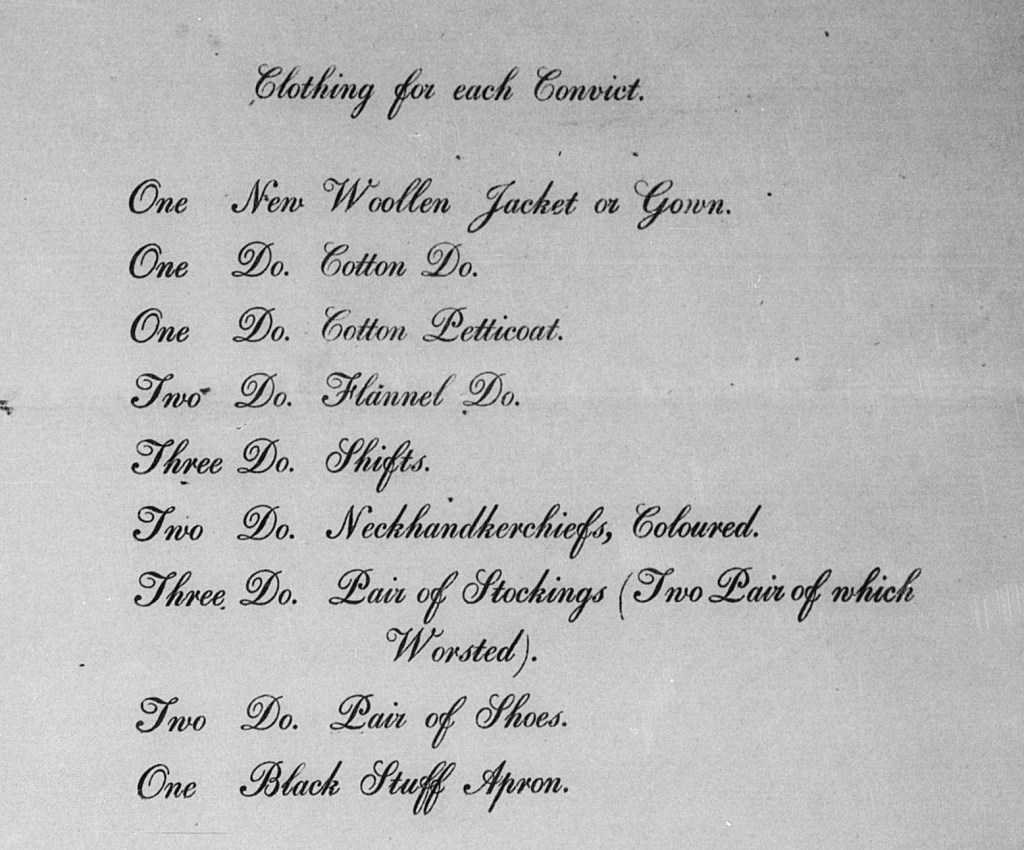 Clothing for each Convict.
One New Woollen Jacket or Gown.
One Do. Cotton Do.
One Do. Cotton Petticoat.
Two Do. Flannel Do.
Three Do. Shifts.
Two Do. Neckhandkerchiefs, Coloured.
Three Do. Pair of Stockings (Two Pair of which
Worsted).
Two Do. Pair of Shoes.
One Black Stuff Apron.